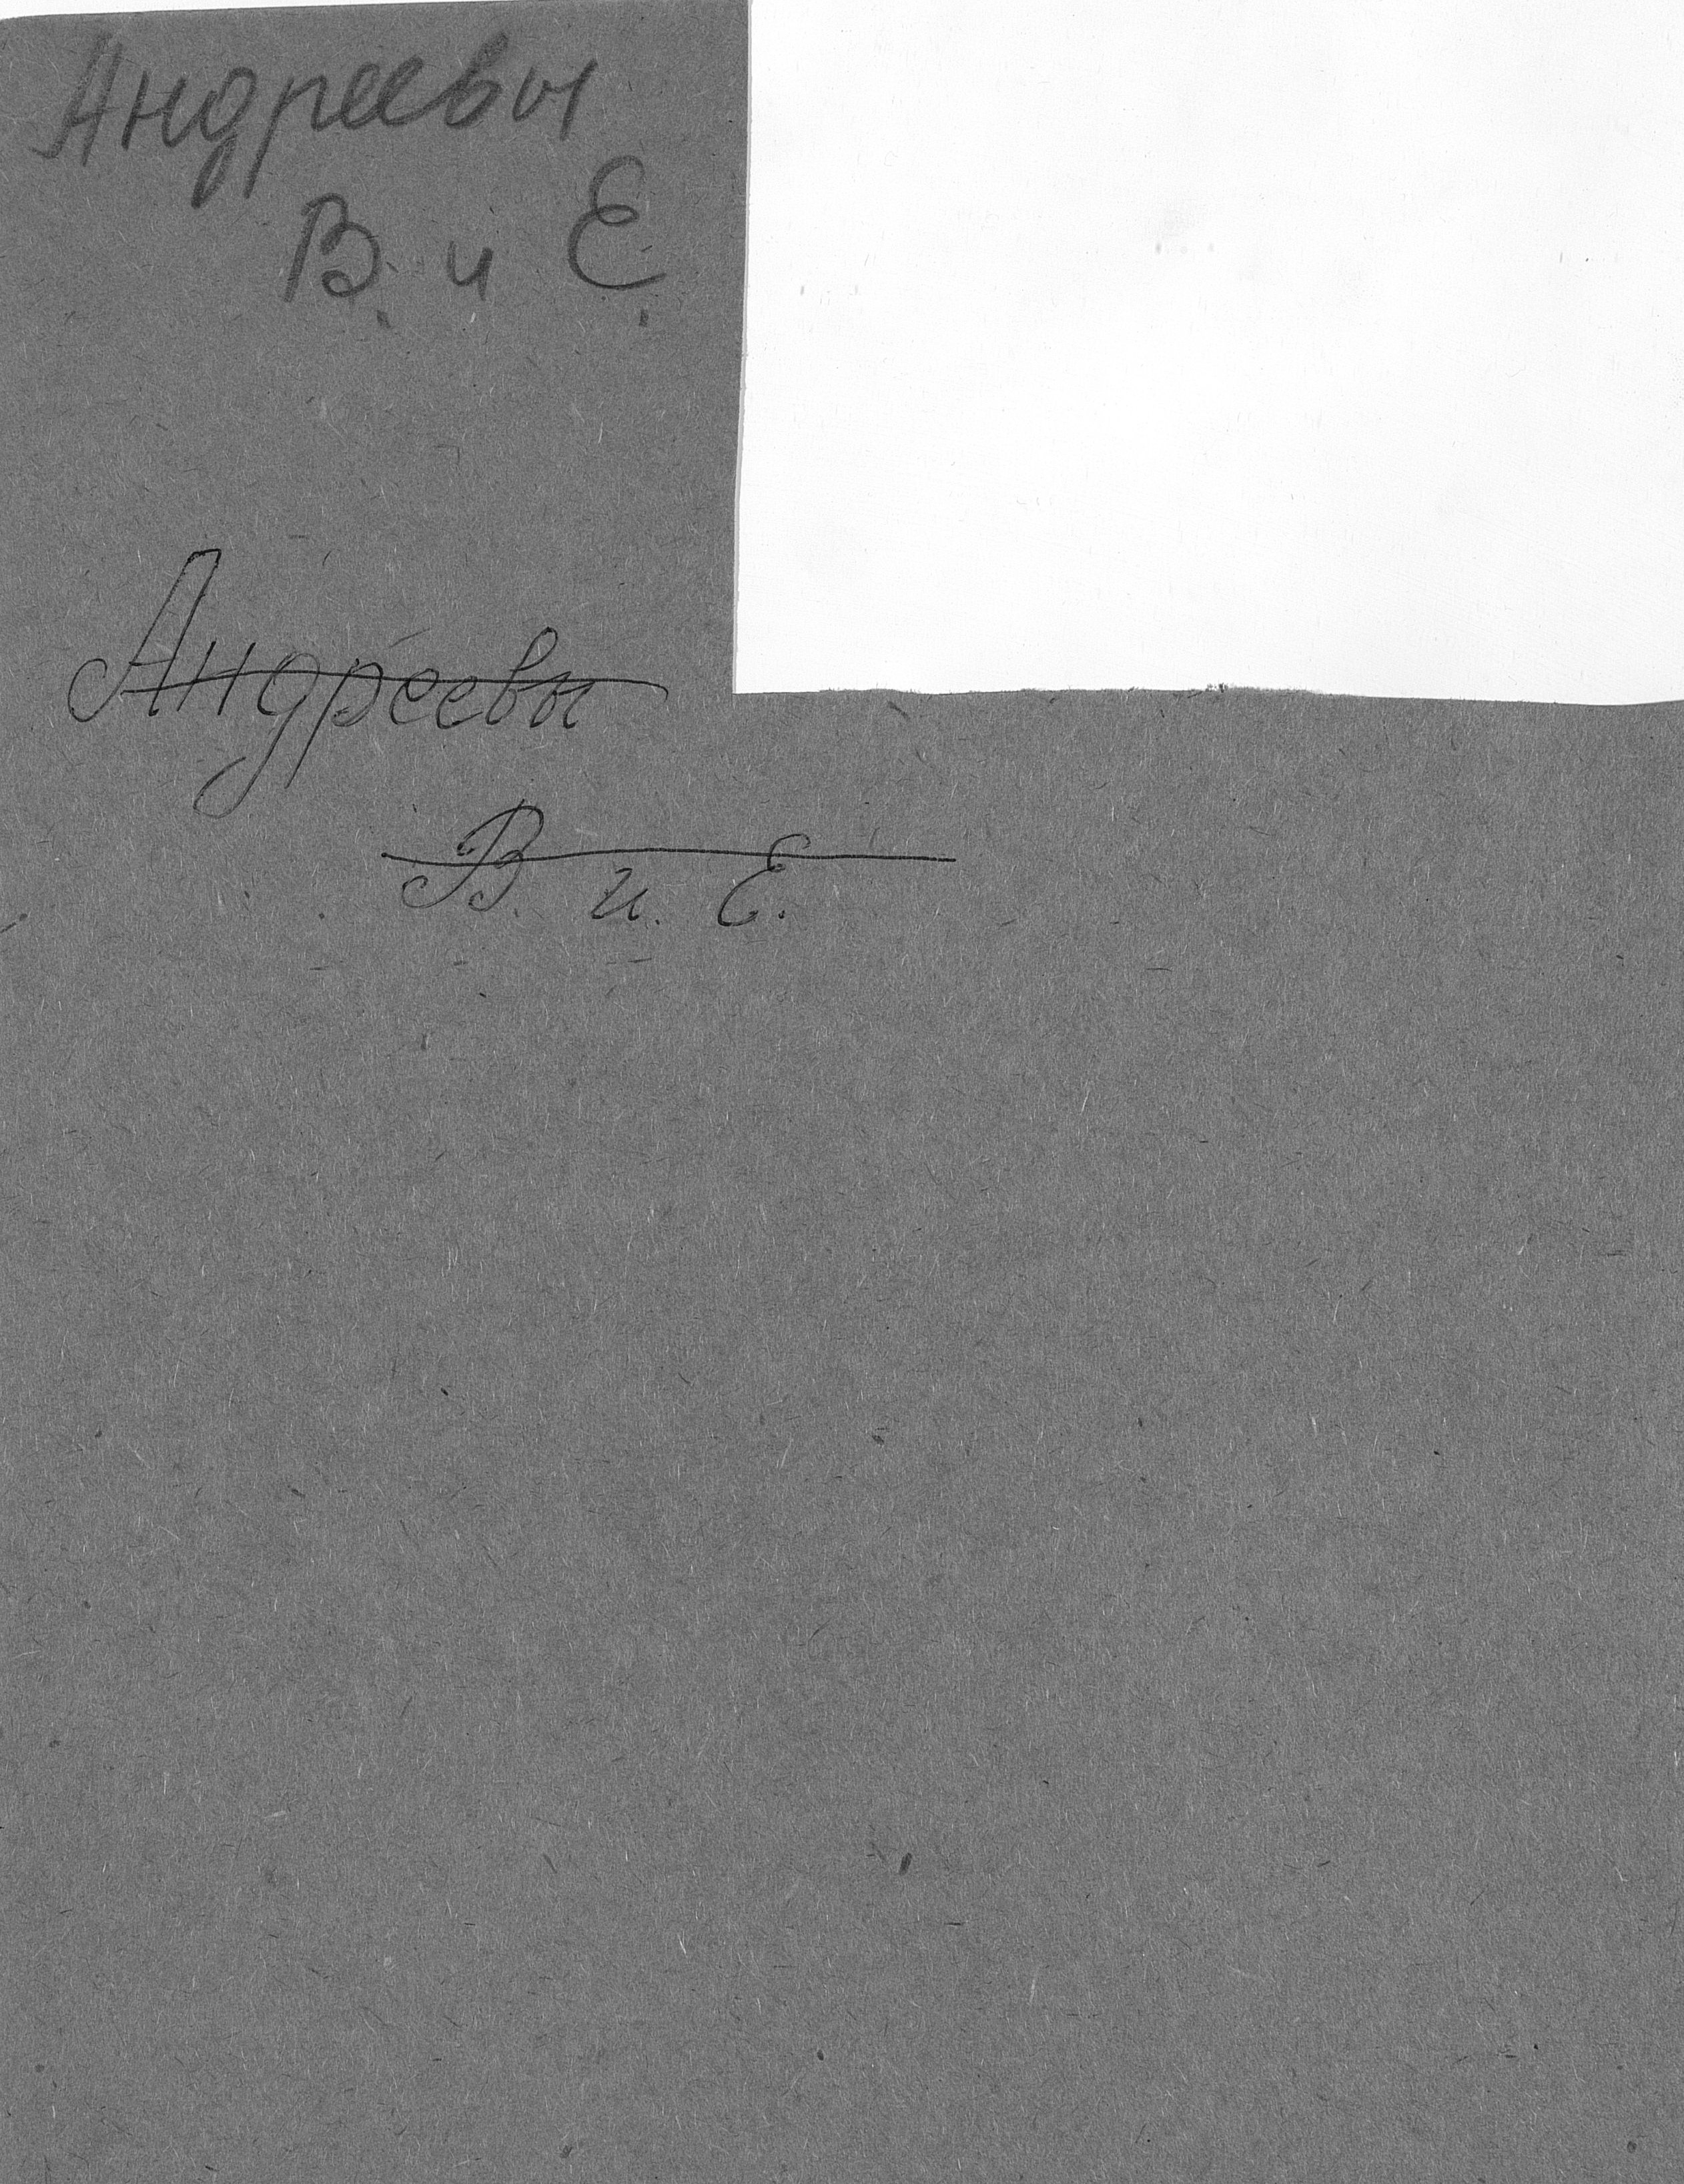 Андреевы
В. и Е.
Андреевы
В. и. Е.